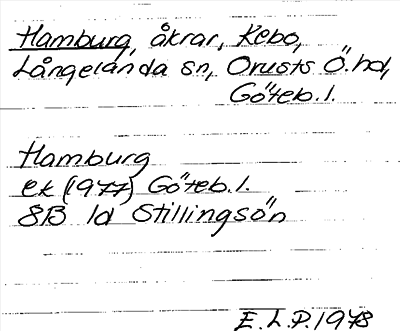 Hamburg, åkrar, Kebo,
Långelanda sn, Orusts Ö. hd,
Göteb. l.
Hamburg
ek (1977) Göteb. l.
8B 1d Stillingsön
E. L. P. 1978